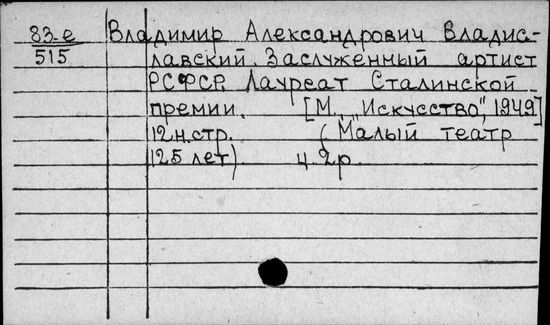 83-е Владимир Александрович Владис-
515 лавский. Заслуженный артист
РСФСР. Лауреат Сталинской
премии. [М., "Искусство", 1949]
12 н.стр. (Малый театр
125 лет) ц. 2 р.